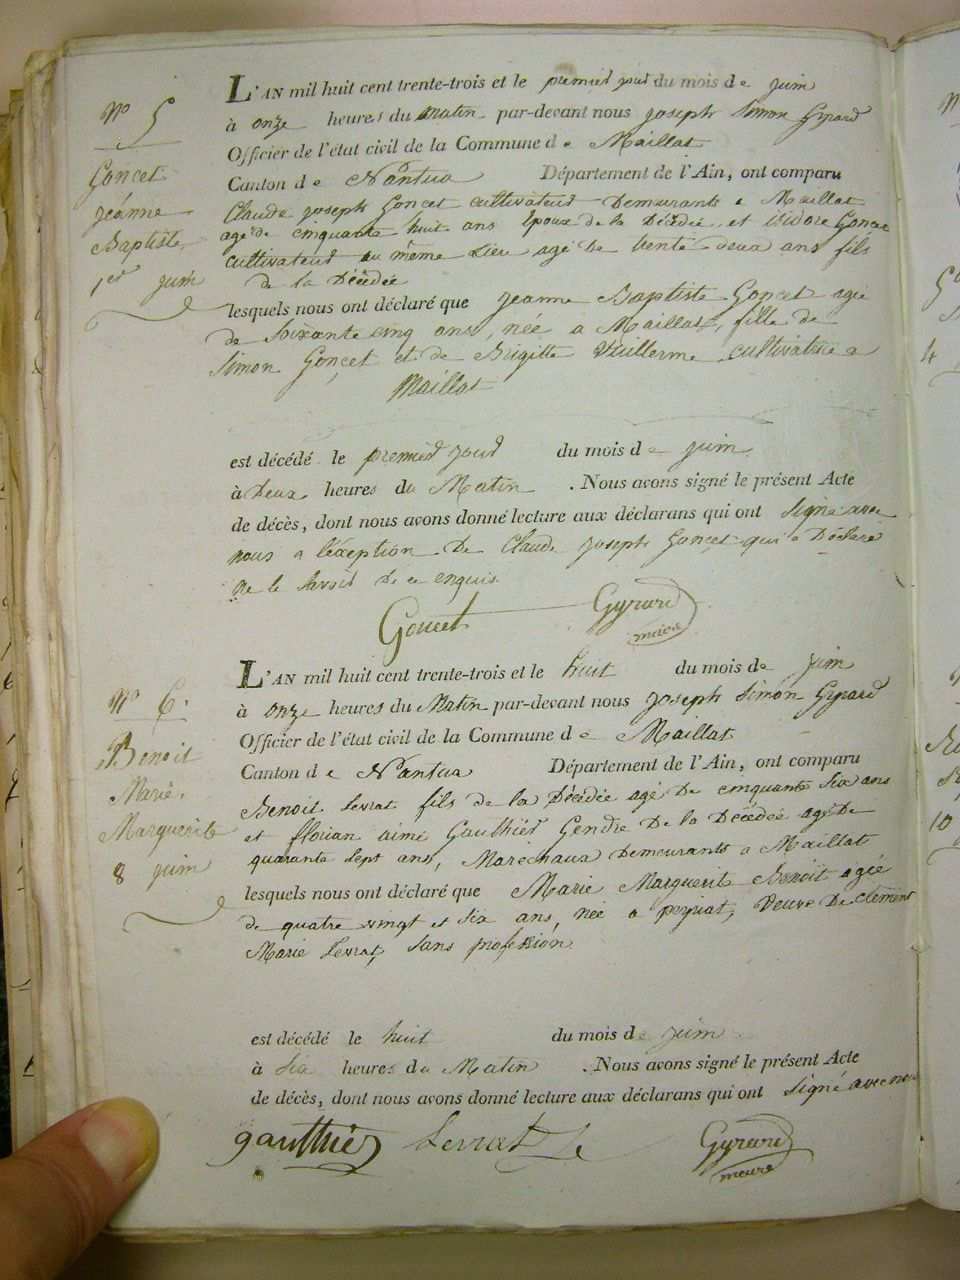 N° 5
Goncet
jeanne
Baptiste
1er juin
L'AN mil huit cent trente-trois et le premier jour du mois de juin
à onze heures du Matin par-devant nous joseph Simon Gyrard
Officier de l'état civil de la Commune de Maillat
Canton de Nantua Département de l'Ain, ont comparu
Claude joseph Goncet cultivateur Demeurants a Maillat
agé de cinquante huit ans Epoux de la Décédée et isidore Goncet
cultivateur au même Lieu agé de trente deux ans fils
de la Décédée
lesquels nous ont déclaré que jeanne Baptiste Goncet agée
de Soixante cinq ans, née a Maillat, fille de
Simon Gonçet et de Brigitte Vuillerme cultivatrice a
Maillat
est décédé le premier jour du mois de juin
à Deux heures du Matin. Nous avons signé le présent Acte
de décès, dont nous avons donné lecture aux déclarans qui ont Signé avec
nous a l'éxeption De Claude joseph Gonçet qui a Déclaré
ne le Savoir de ce enquis
Goncet Gyrard
maire
N° 6.
Benoit
Marie
Marguerite
8 juin
L'AN mil huit cent trente-trois et le huit du mois de juin
à onze heures du Matin par-devant nous joseph Simon Gyrard
Officier de l'état civil de la Commune de Maillat
Canton de Nantua Département de l'Ain, ont comparu
Benoit Levrat fils de la Décédée agé De cinquante Six ans
et florian aimé Gauthier Gendre De la Décédée agé De
quarante Sept ans, Maréchaux Demeurants a Maillat
lesquels nous ont déclaré que Marie Marguerite Benoit agée
de quatre vingt et Six ans, née a peyriat, Veuve De clement
Marie Levrat, Sans profession
est décédé le huit du mois de juin
à Six heures du Matin. Nous avons signé le présent Acte
de décès, dont nous avons donné lecture aux déclarans qui ont Signé avec nous
gauthier Levrat Gyrard
maire